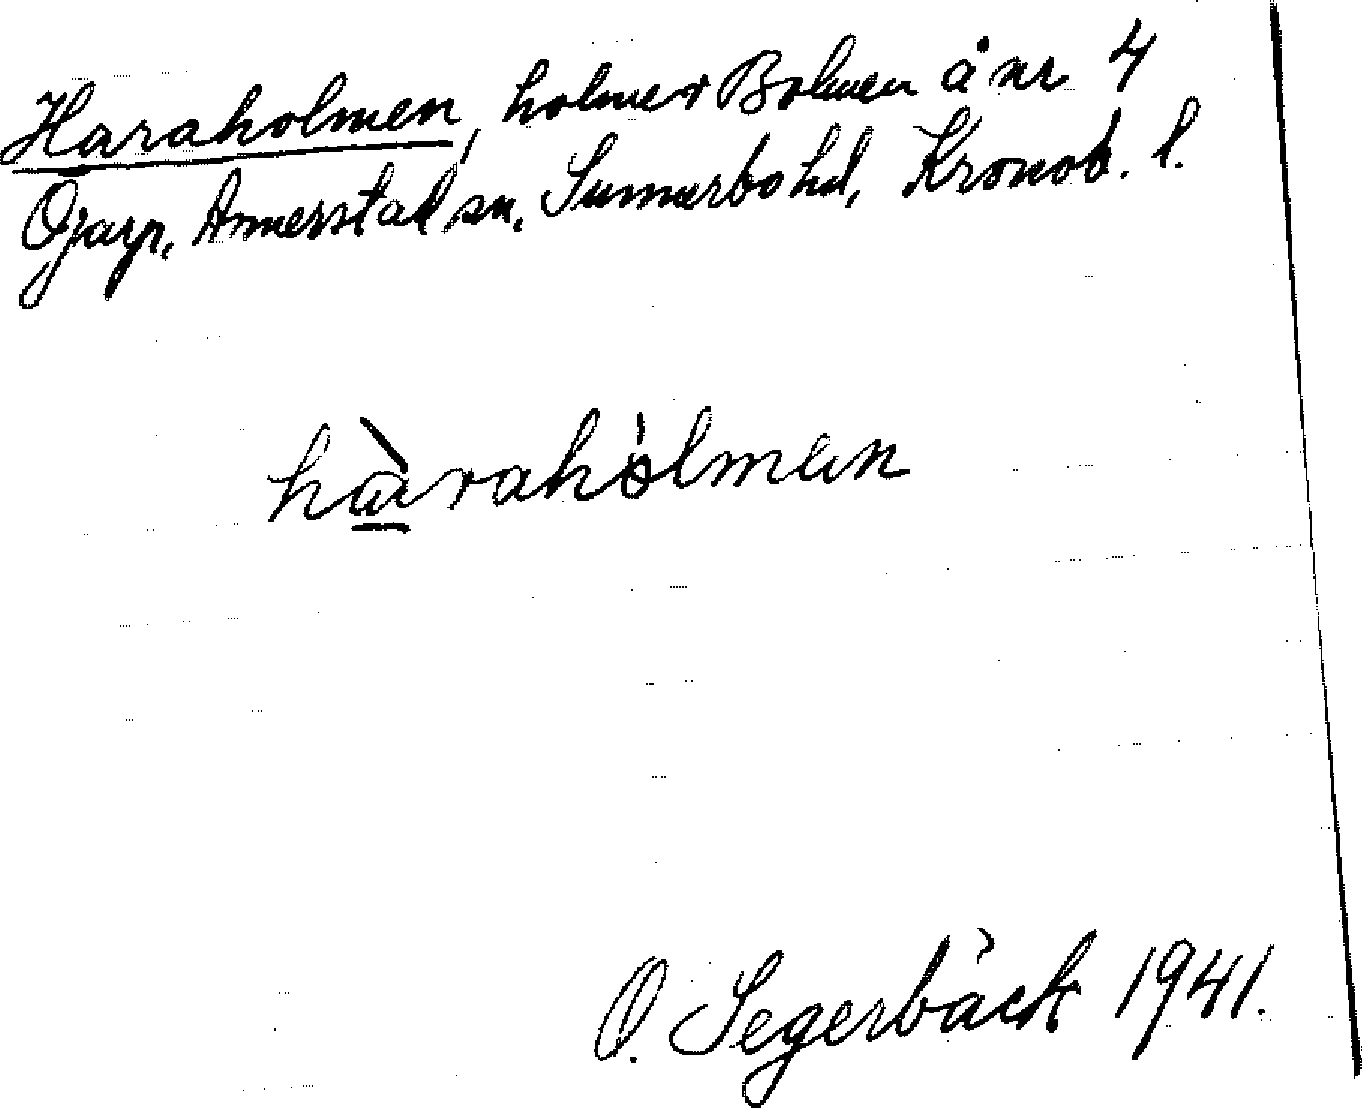 Haraholmen, holme i Bolmen å nr 4
Öjarp, Annerstad sn, Sunnerbo hd, Kronob. l.
hàrahòlmen
O. Segerbäck 1941.